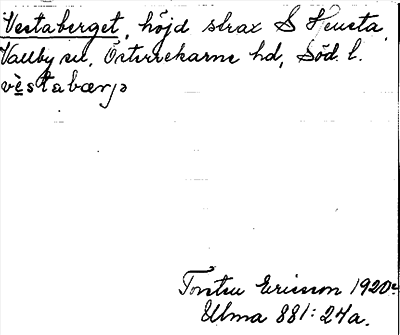 Vestaberget, höjd strax S Hensta,
Vallby sn, Österrekarne hd, Söd. l.
vèstabærjə
Torsten Ericsson 1920.
Ulma 881:24a.